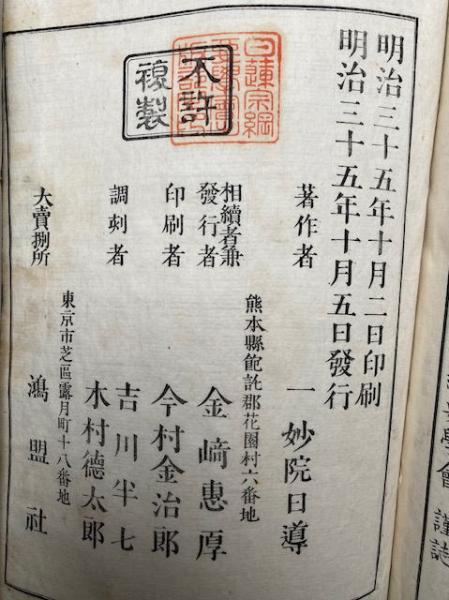 學會 謹誌
明治三十五年十月二日印刷
明治三十五年十月五日發行
不許
複製
日蓮宗綱
著作者 一妙院日導
熊本縣飽託郡花園村六番地
相續者兼
發行者 金﨑惠厚
印刷者 今村金治郎
調刻者 吉川半七
木村德太郎
東京市芝區露月町十八番地
大賣捌所 鴻盟社